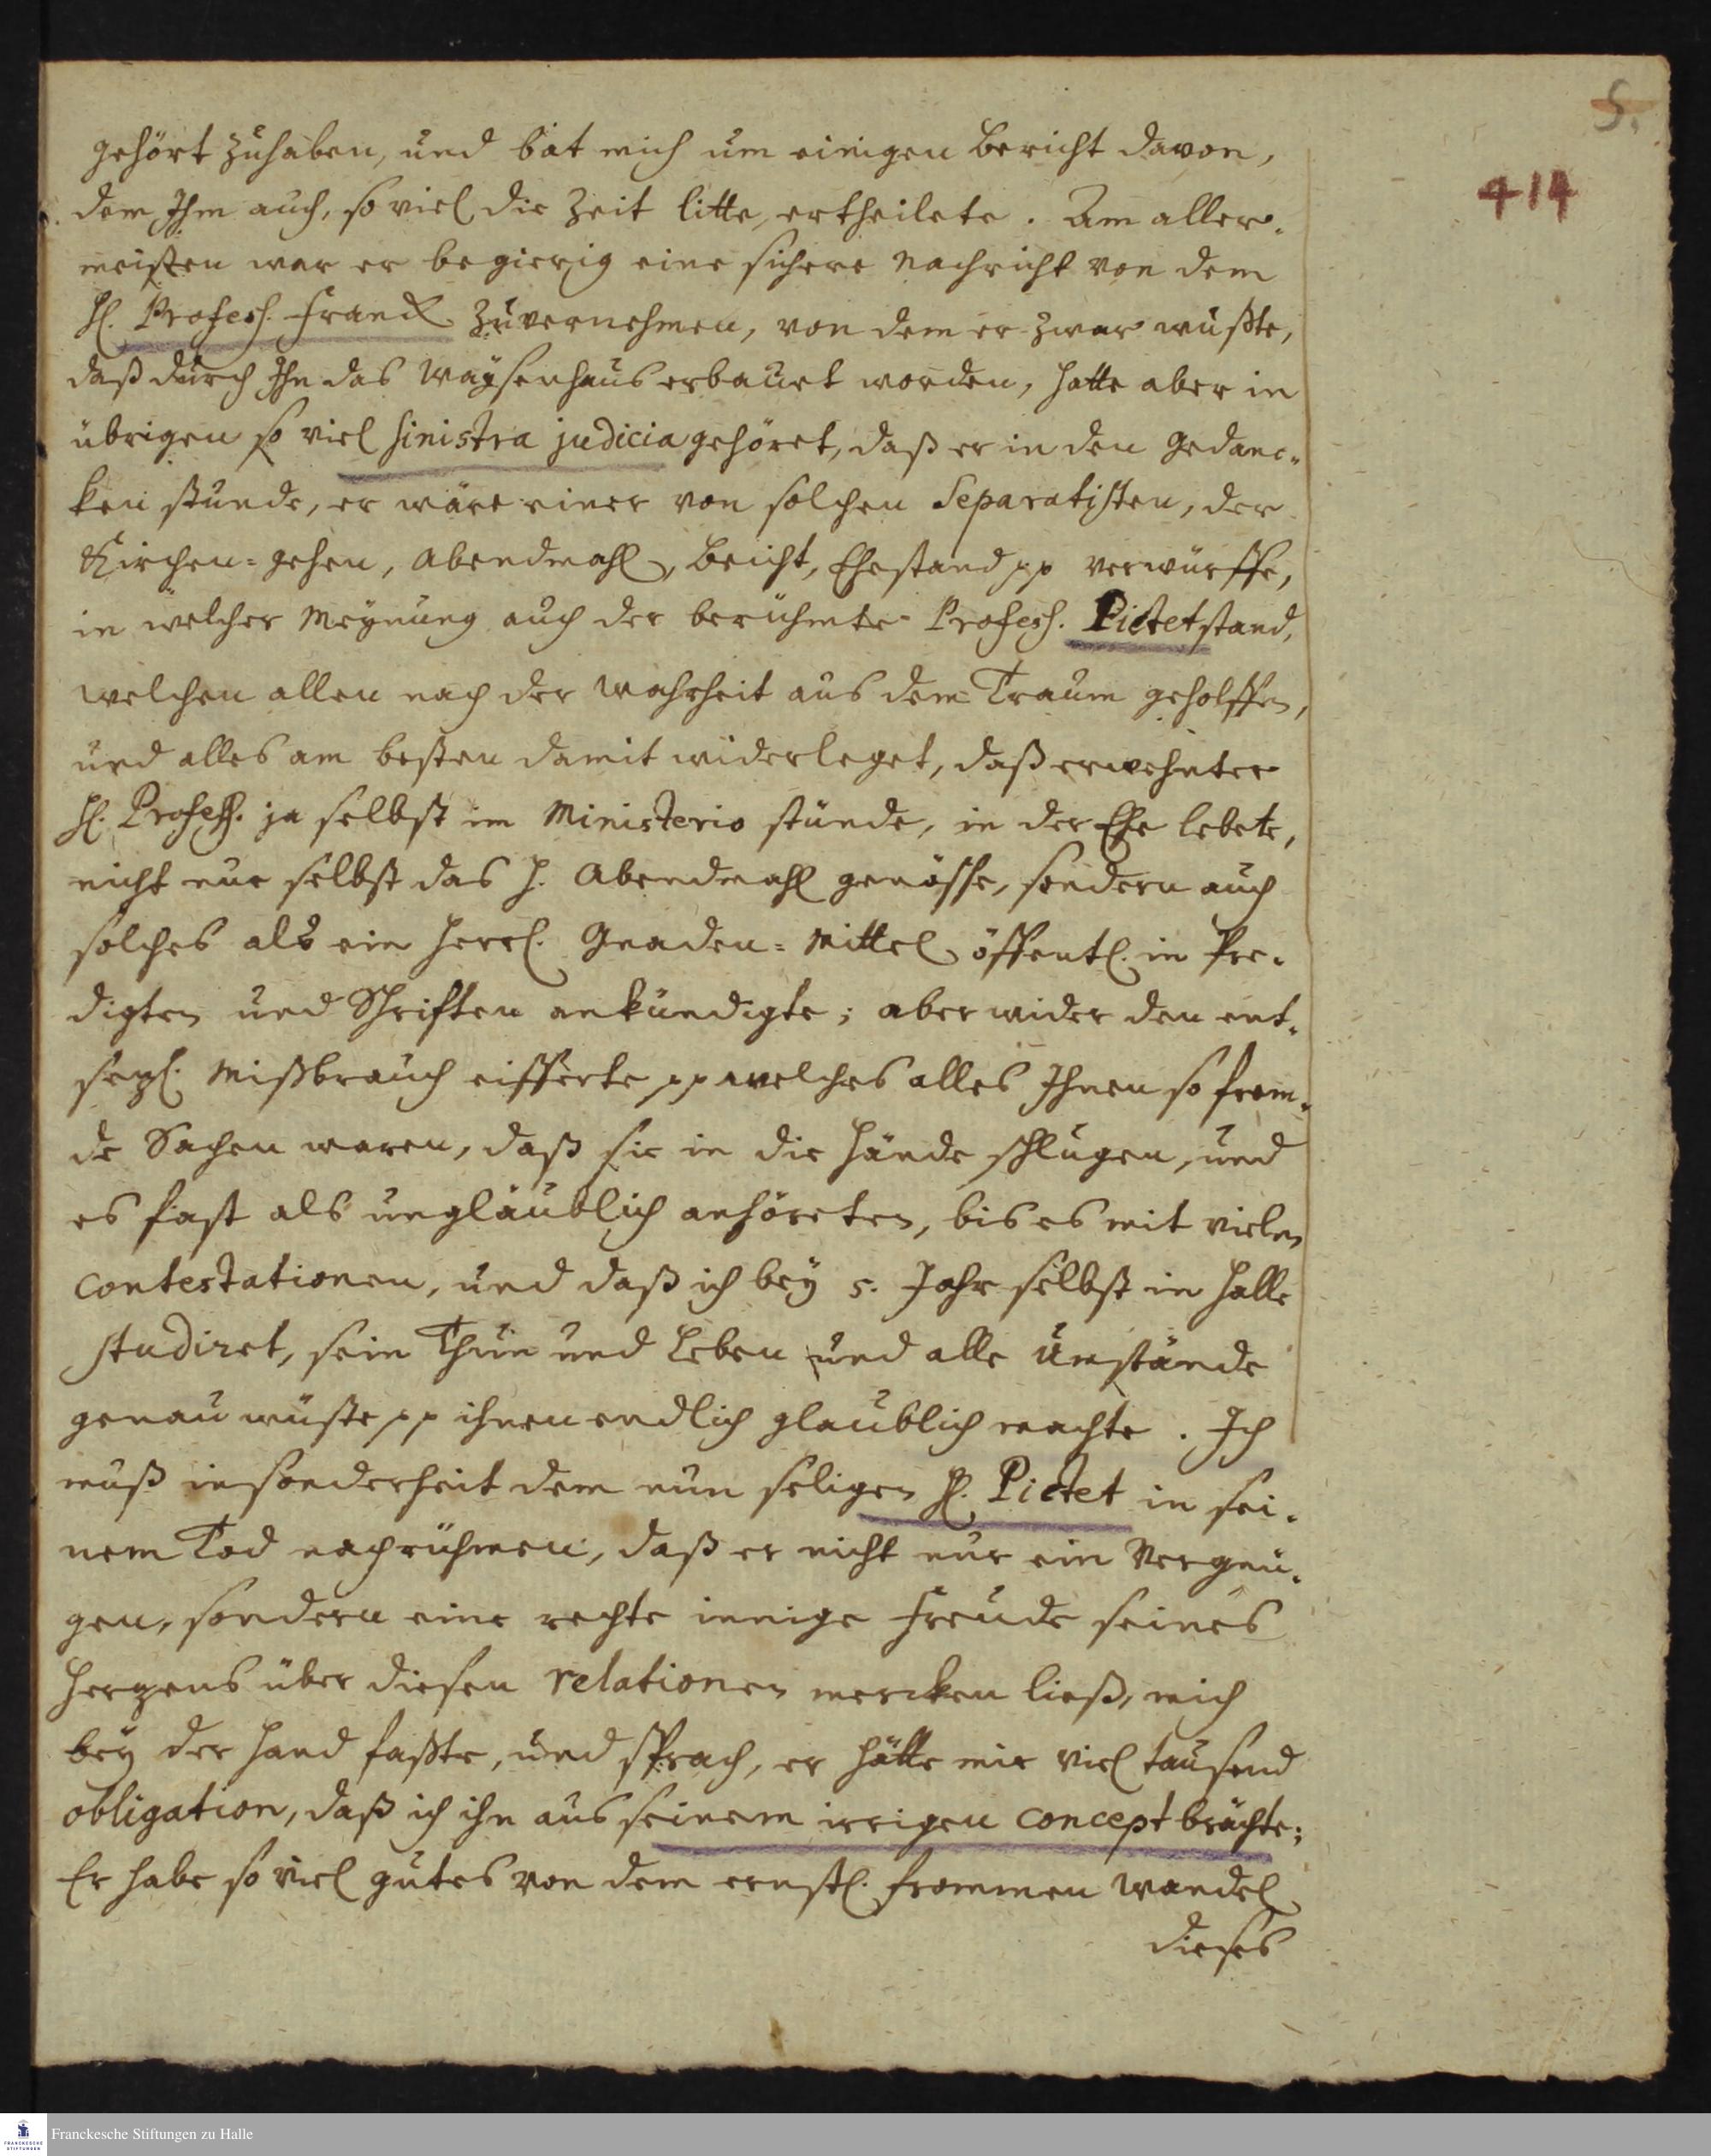 5.
414
gehört zuhaben, und bat mich um einigen Bericht davon,
dem Ihm auch, so viel die Zeit litte, ertheilete. Am aller-
meisten war er begierig eine sichere Nachricht von dem
H. Profess. Franck zuvernehmen, von dem er zwar wußte,
daß durch Ihn das Waysenhaus erbauet worden, hatte aber in
übrigen so viel sinistra judicia gehöret, daß er in den Gedanc-
ken stunde, er wäre einer von solchen Separatisten, der
Kirchen-gehen, Abendmahl, Beicht, Ehestand pp verwürffe,
in welcher Meynung auch der berühmte Profess. Pictet stand,
welchen allen nach der Wahrheit aus dem Traum geholffen,
und alles am besten damit widerleget, daß erwehnter
H. Profess. ja selbst im Ministerio stünde, in der Ehe lebete,
nicht nur selbst das H. Abendmahl genösse, sondern auch
solches als ein herrl. Gnaden-Mittel öffentl. in Pre-
digten und Schrifften ankündigte; aber wider den ent-
sezl. Mißbrauch eifferte pp welches alles Ihnen so frem-
de Sachen waren, daß sie in die Hände schlugen, und
es fast als ungläublich anhöreten, bis es mit vielen
contestationen, und daß ich bey 5. Jahr selbst in Halle
studiret, sein Thun und Leben und alle Umstände
genau wüste pp ihnen endlich glaublich machte. Ich
muß insonderheit dem nun seligen H. Pictet in sei-
nem Tod nachrühmen, daß er nicht nur ein Vergnü-
gen, sondern eine rechte innige Freude seines
Herzens über diesen relationen mercken ließ, mich
bey der Hand faßte, und sprach, er hätte mir viel tausend
obligation, daß ich ihn aus seinem irrigen concept brächte;
Er habe so viel gutes von dem ernstl. frommen Wandel
dieses
Franckesche Stiftungen zu Halle
FRANCKESCHE
STIFTUNGEN